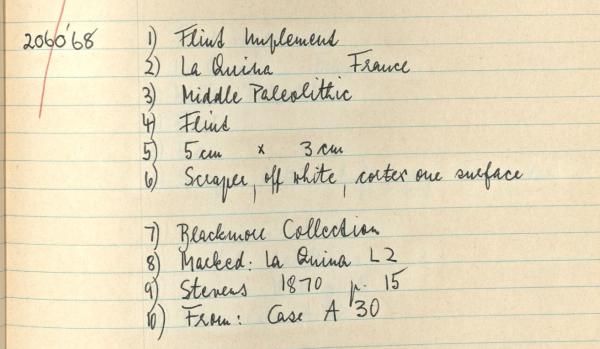 2060'68 1) Flint Implement
2) La Quina France
3) Middle Paleolithic
4) Flint
5) 5 cm x 3 cm
6) Scraper, off white, cortex one surface
7) Blackmore Collection
8) Marked: La Quina L2
9) Stevens 1870 p. 15
10) From: Case A 30